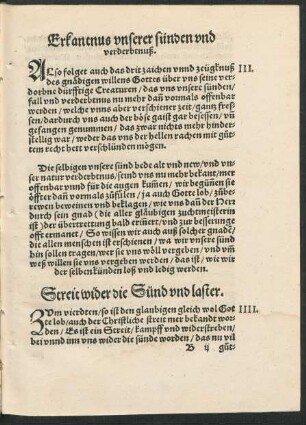 Erkantnus vnserer sünden vnd
verderbtnuß.
ALso folget auch das drit zaichen vnnd zeügknuß III.
des gnädigen willens Gottes über vns seine ver-
dorbne dürfftige Creaturen / das vns vnsere sünden /
fall vnd verderbtnus mehr dañ vormals offenbar
werden / welche vnns aber verschiener zeit / gantz fres-
sen / dardurch vns auch der böse gaist gar besessen / vñ
gefangen genummen / das zwar nichts mehr hinder-
stellig war / weder das vns der hellen rachen mit güt-
tem recht hett verschlünden mögen.
Die selbigen vnsere sünd bede alt vnd new / vnd vn-
ser natur verderbtnus / send vns nu mehr bekant / mer
offenbar vnnd für die augen kumen / wir begünen sie
öffter dañ vormals zůfülen / ja auch Gotte lob / zůbe-
trewren beweinen vnd beklagen / wie vns dañ der Herr
durch sein gnad (die aller gläubigen zuchtmeisterin
ist) der übertrettung bald erinnert / vnd zur besserunge
offt ermanet / So wissen wir auch auß solcher gnade /
die allen menschen ist erschienen / wa wir vnsere sünd
hin sollen tragen / wer sie vns wöll vergeben / vnd vm̃
weß willen sie vns vergeben werden / das ist / wie wir
der selben künden loß vnd ledig werden.
Streit wider die Sünd vnd laster.
ZVm vierdten / so ist den glaubigen gleich wol Got IIII.
te lob / auch der Christliche streit mer bekandt wor-
den / Es ist ein Streit / kampff vnd widerstreben /
bei vnnd inn vns wider die sünde worden / das nu vil
B ij güt-